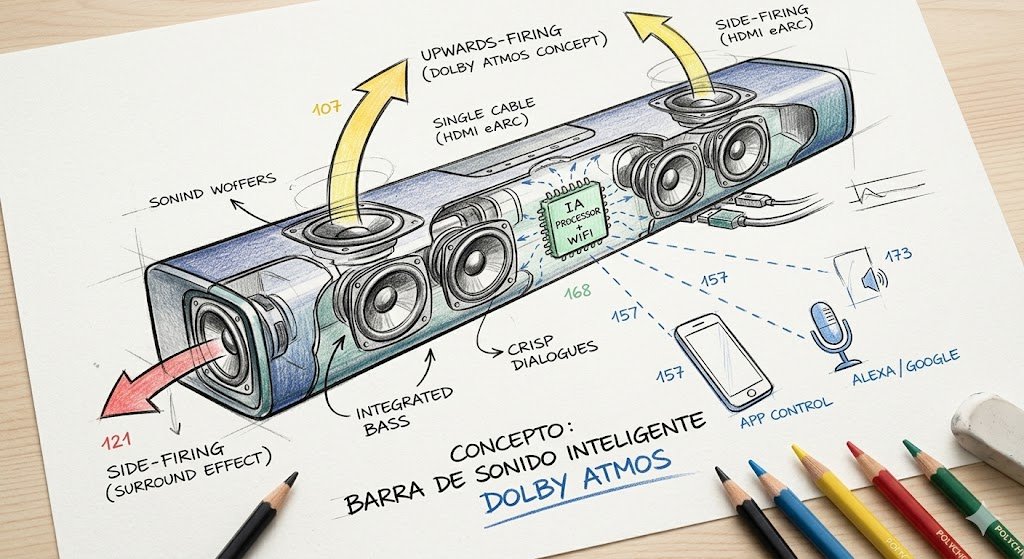 UPWARDS-FIRING
(DOLBY ATMOS CONCEPT)
SIDE-FIRING
(HDMI eARC)
107
SINGLE CABLE
(HDMI eARC)
SONIND WOFFERS
IA
PROCESSOR
+
WIFI
168
157
157
157
173
ALEXA/GOOGLE
APP CONTROL
CRISP
DIALOGUES
INTEGRATED
BASS
121
SIDE-FIRING
(SURROUND EFFECT)
CONCEPTO:
BARRA DE SONIDO INTELIGENTE
DOLBY ATMOS
POLYCHO
POLYCH